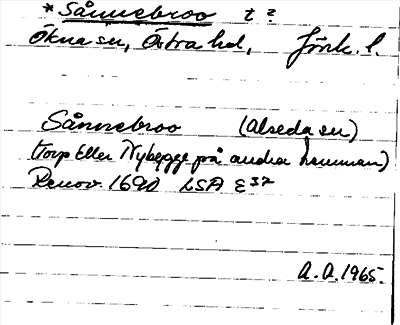 *Sånnebroo t?
Ökna sn, Östra hd, Jönk. l.
Sånnebroo (Alseda sn)
(Torp Eller Nybygge på andra hemman)
Renov. 1690 LSA E37
A.A. 1965.